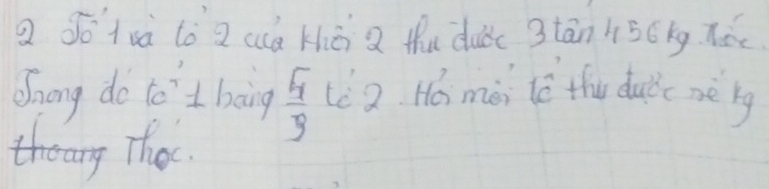 2 Tổ 1 và tổ 2 của khối 2 thu được 3 tấn 456 kg thóc.
Trong đó tổ 1 bằng 5/9 tổ 2. Hỏi mỗi tổ thu được kg
Thóc.